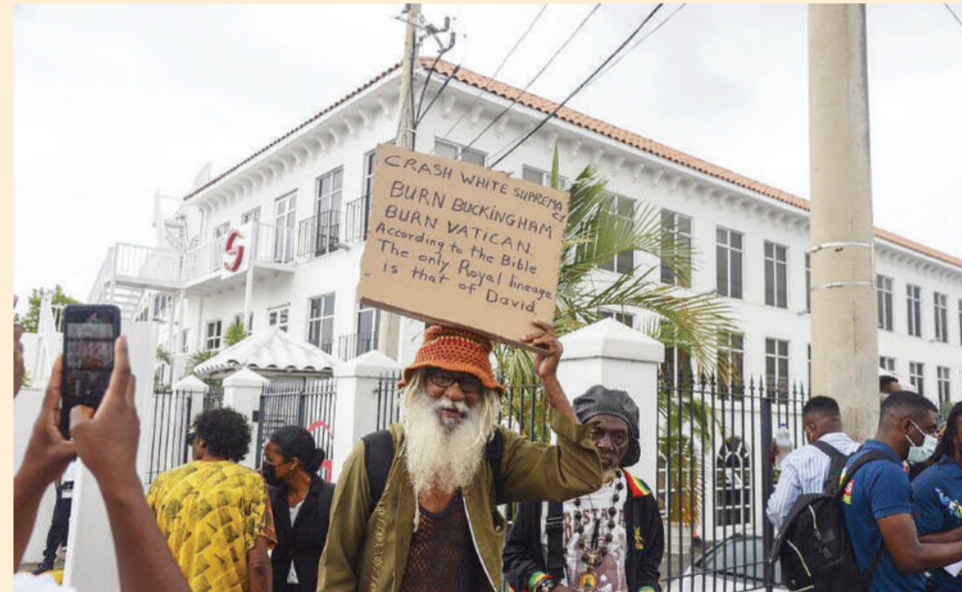 CRASH WHITE SUPREMA
CY
BURN BUCKINGHAM
BURN VATICAN.
According to the Bible
The only Royal lineage
is that of David.